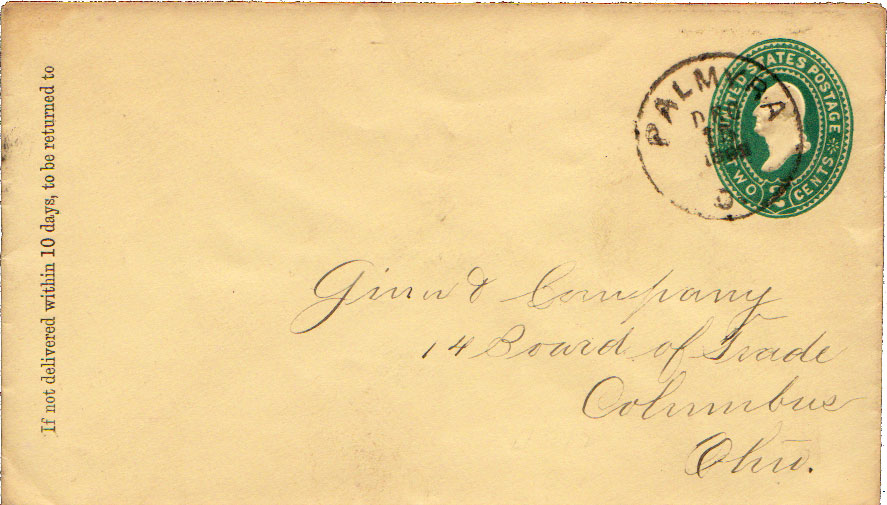 If not delivered within 10 days, to be returned to
UNITED STATES POSTAGE
TWO 2 CENTS
PALMYRA
O
Ginn & Company
14 Board of Trade
Columbus
Ohio.